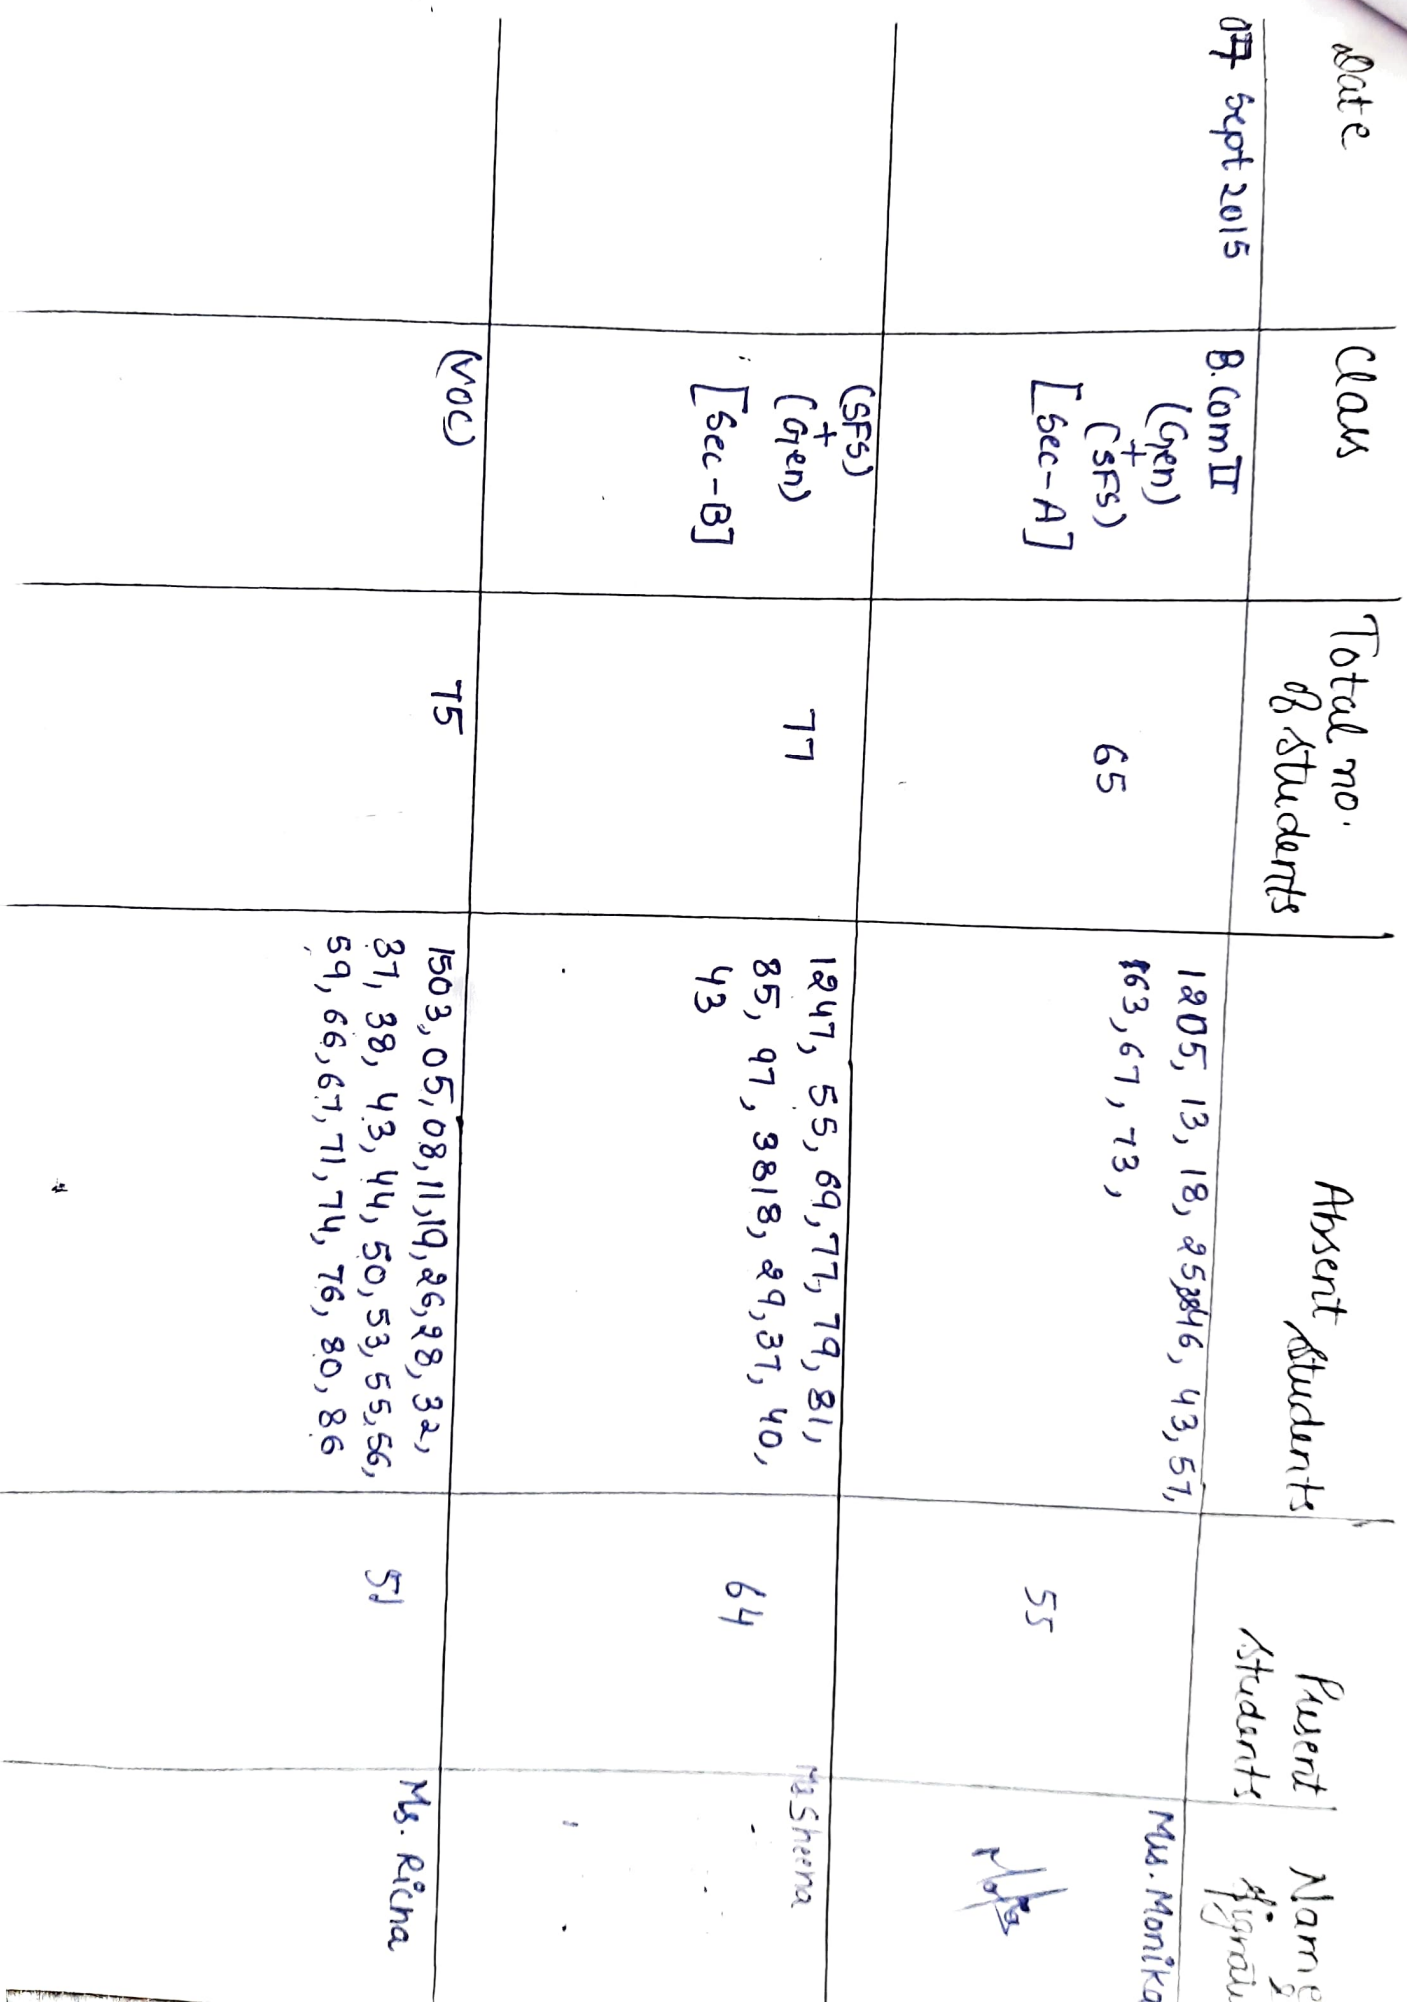 Date
Class
Total no.
of students
Absent students
Present
students
Name
&
07 Sept 2015
B.Com II
(Gen)
+
(SFS)
[Sec-A]
65
1205, 13, 18, 25, 46, 43, 57,
63, 67, 73,
55
Mrs. Monika
(SFS)
+
(Gen)
[Sec-B]
77
1247, 55, 69, 77, 79, 81,
85, 97, 3818, 29, 37, 40,
43
64
Ms Sheena
(VOC)
75
1503, 05, 08, 11, 19, 26, 28, 32,
37, 38, 43, 44, 50, 53, 55, 56,
59, 66, 67, 71, 74, 76, 80, 86
51
Ms. Richa